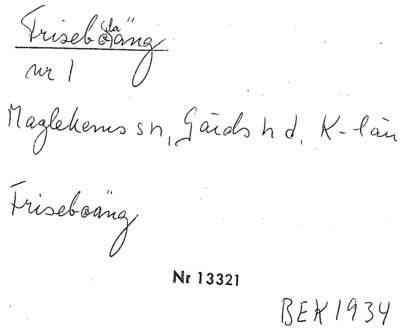 Friseboäng
nr 1
Maglehems sn, Gärds hd, K-län
Friseboäng
Nr 13321
BEK 1934